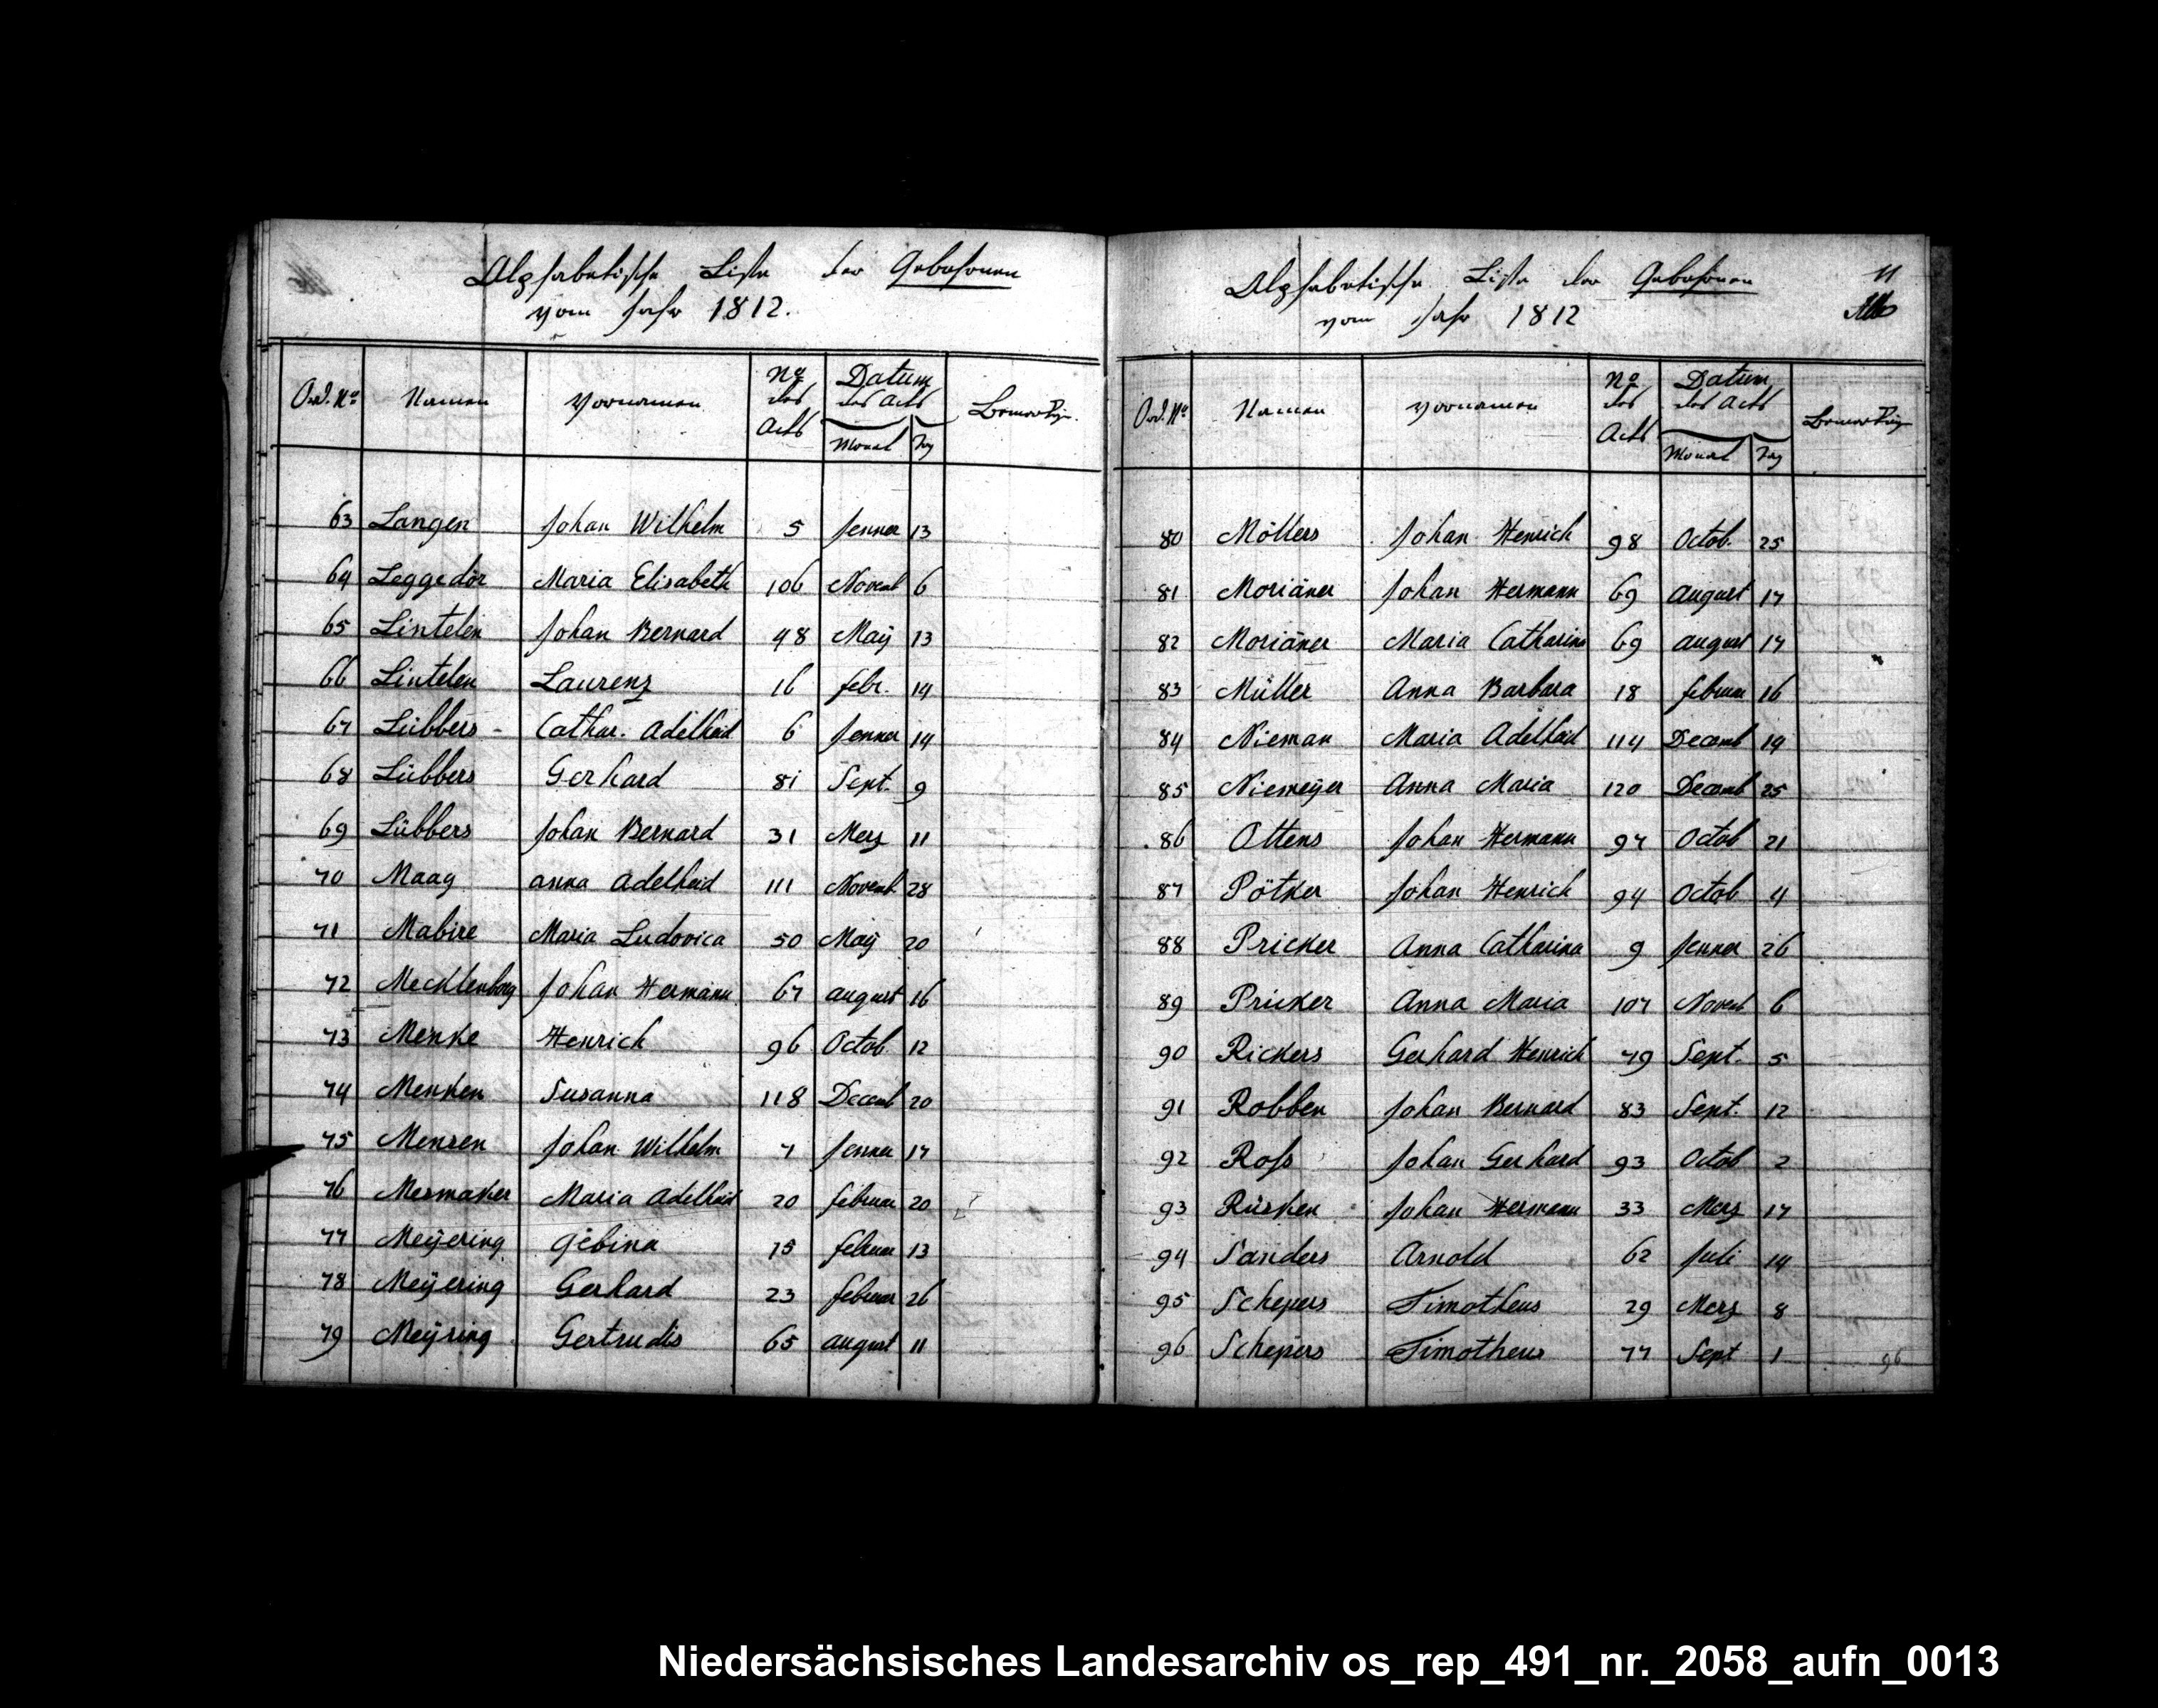 Alphabetische Liste der Gebohrnen
vom Jahr 1812.
Ord. No Namen Vornamen No des Acts Datum des Acts Monat Tag Bemerkg.
63 Langen Johan Wilhelm 5 Jenner 13
64 Leggedör Maria Elisabeth 106 Novemb 6
65 Lintelen Johan Bernard 48 Maÿ 13
66 Lintelen Laurenz 16 febr. 14
67 Lübbers - Cathar. Adelheid 6 Jenner 14
68 Lübbers Gerhard 81 Sept. 9
69 Lübbers Johan Bernard 31 Merz 11
70 Maag anna adelheid 111 Novemb 28
71 Mabire Maria Ludovica 50 Maÿ 20
72 Mecklenborg Johan Hermann 67 august 16
73 Menke Henrich 96 Octob. 12
74 Menken Susanna 118 Decemb 20
75 Mensen Johan Wilhelm 7 Jenner 17
76 Mesmaker Maria adelheid 20 februar 20
77 Meÿering Gebina 15 februar 13
78 Meÿering Gerhard 23 februar 26
79 Meÿring Gertrudis 65 august 11
Alphabetische Liste der Gebohrnen 11
vom Jahr 1812
Ord. No Namen Vornamen No des Acts Datum des Acts Monat Tag Bemerkg
80 Möllers Johan Henrich 98 Octob. 25
81 Moriäner Johan Hermann 69 august 17
82 Moriäner Maria Catharina 69 august 17
83 Müller Anna Barbara 18 februar 16
84 Nieman Maria Adelheid 114 Decemb 19
85 Niemeÿer Anna Maria 120 Decemb 25
86 Ottens Johan Hermann 97 Octob 21
87 Pötker Johan Henrich 94 Octob 4
88 Pricker Anna Catharina 9 Jenner 26
89 Pricker Anna Maria 107 Novemb 6
90 Rickers Gerhard Henrich 79 Sept. 5
91 Robben Johan Bernard 83 Sept. 12
92 Roſs Johan Gerhard 93 Octob 2
93 Rüsken Johan Hermann 33 Merz 17
94 Sanders Arnold 62 Juli 14
95 Schepers Timotheus 29 Merz 8
96 Schepers Timotheus 77 Sept 1
96
Niedersächsisches Landesarchiv os_rep_491_nr._2058_aufn_0013